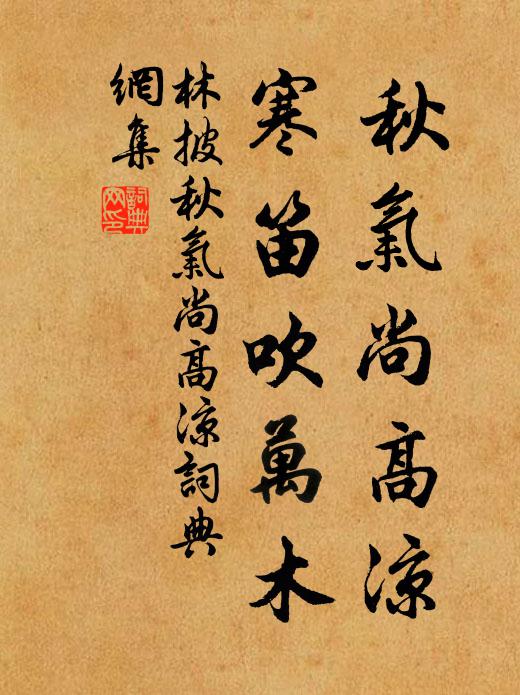 秋氣尚高涼
寒笛吹萬木
林披秋氣尚高涼詞典
網集
詞典
网印